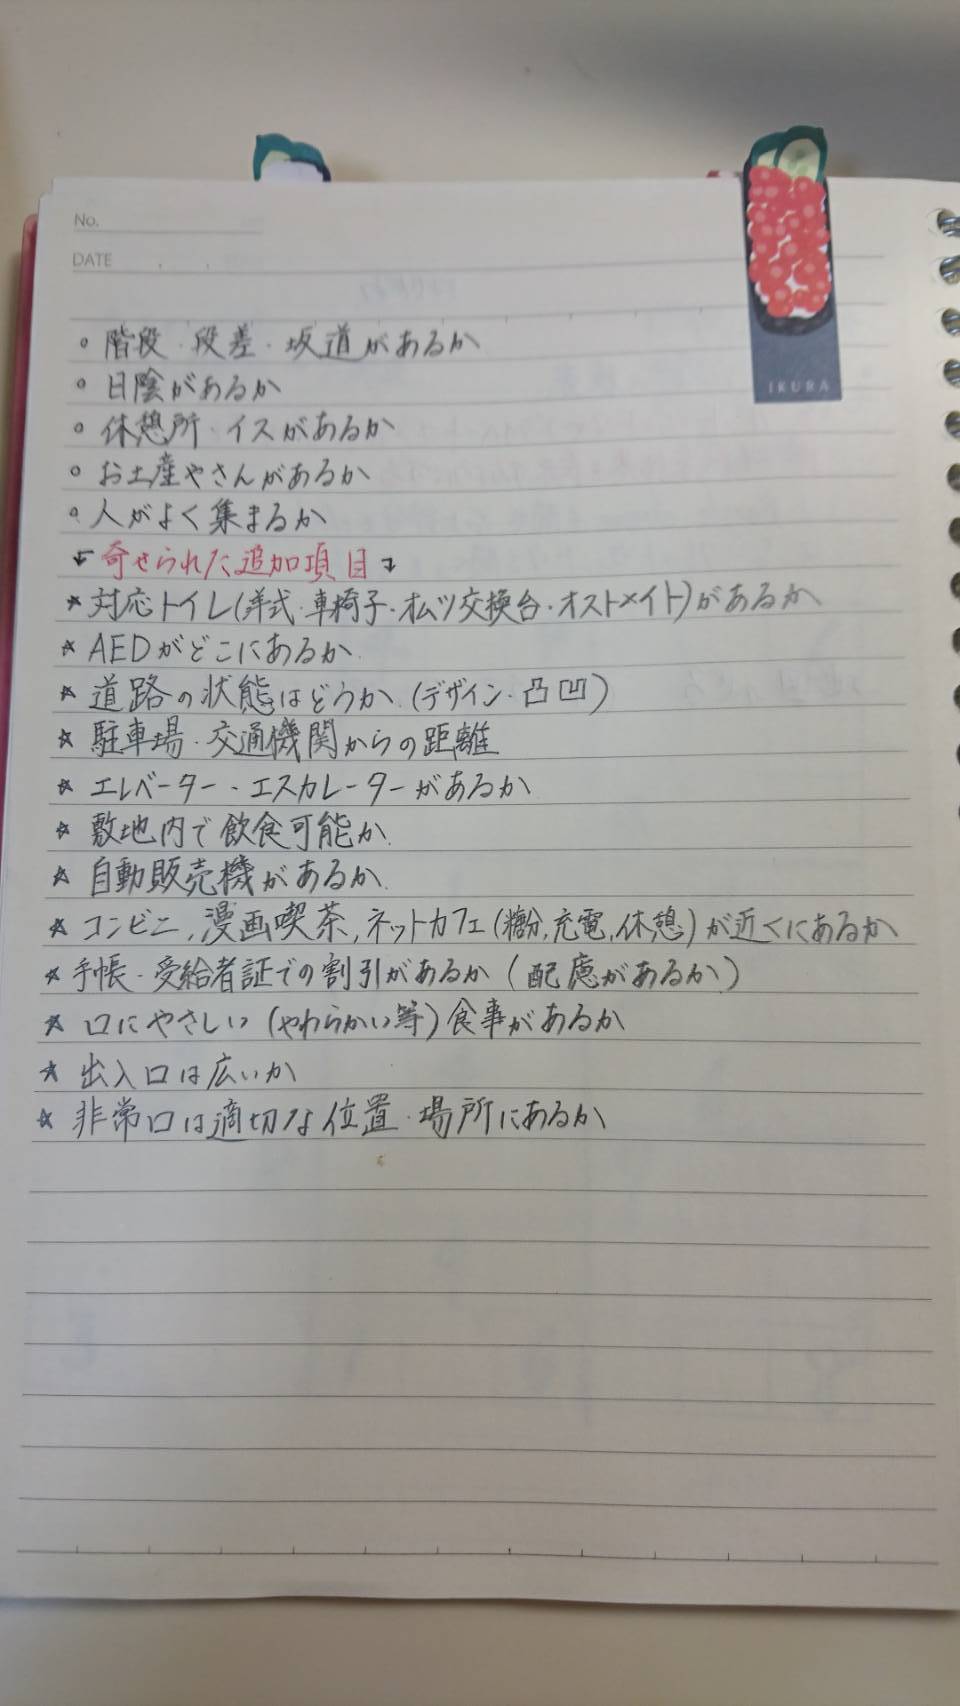 No.
DATE
IKURA
○ 階段・段差・坂道があるか
○ 日陰があるか
○ 休憩所・イスがあるか
○ お土産やさんがあるか
○ 人がよく集まるか
寄せられた追加項目
☆ 対応トイレ(洋式・車椅子・オムツ交換台・オストメイト)があるか
☆ AEDがどこにあるか
☆ 道路の状態はどうか(デザイン・凸凹)
☆ 駐車場・交通機関からの距離
☆ エレベーター・エスカレーターがあるか
☆ 敷地内で飲食可能か
☆ 自動販売機があるか
☆ コンビニ,漫画喫茶,ネットカフェ(糖分,充電,休憩)が近くにあるか
☆ 手帳・受給者証での割引があるか(配慮があるか)
☆ 口にやさしい(やわらかい等)食事があるか
☆ 出入口は広いか
☆ 非常口は適切な位置・場所にあるか